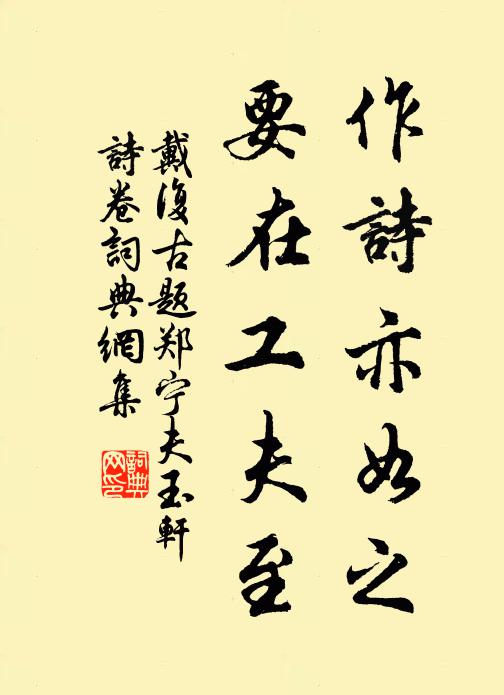 作詩亦如之
要在工夫至
戴復古題郑宁夫玉軒
詩卷詞典網集
詞典网印